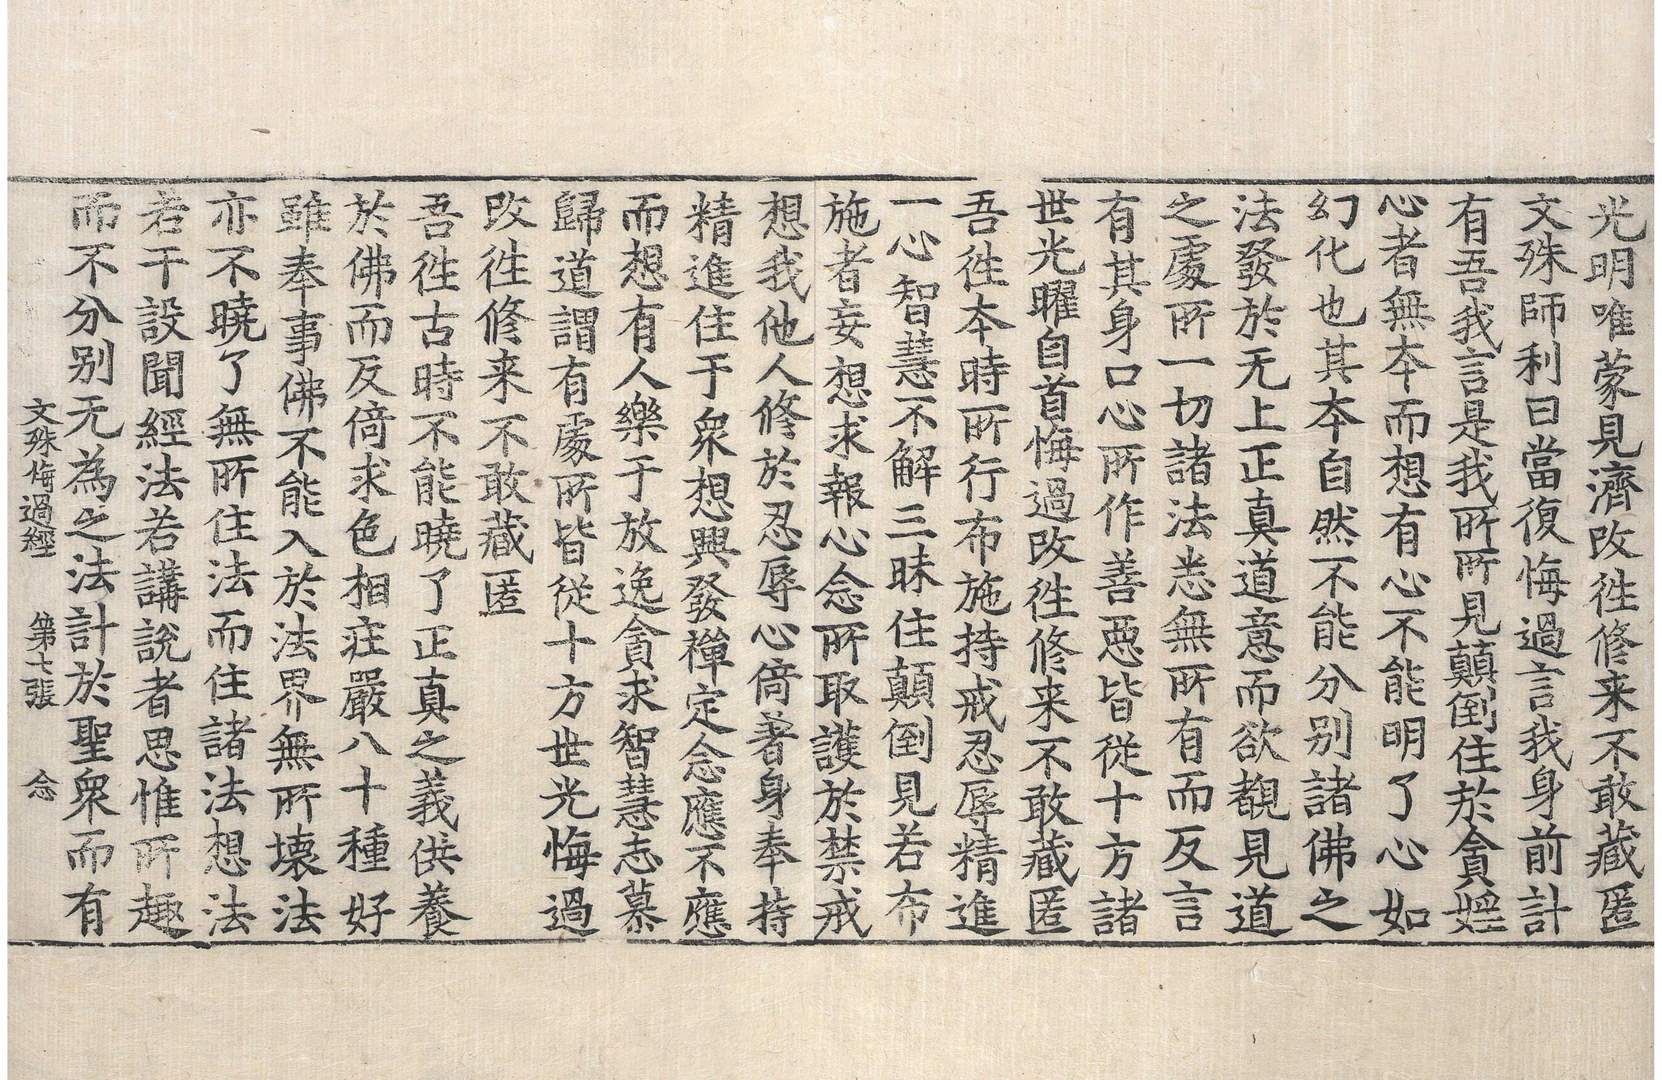 光明唯蒙見濟改徃修来不敢藏匿
文殊師利曰當復悔過言我身前計
有吾我言是我所所見顛倒住於貪婬
心者無本而想有心不能明了心如
幻化也其本自然不能分別諸佛之
法發於无上正真道意而欲覩見道
之處所一切諸法悉無所有而反言
有其身口心所作善惡皆從十方諸
世光曜自首悔過改徃修来不敢藏匿
吾徃本時所行布施持戒忍辱精進
一心智慧不解三昧住顛倒見若布
施者妄想求報心念所取護於禁戒
想我他人修於忍辱心倚著身奉持
精進住于衆想興發禪定念應不應
而想有人樂于放逸貪求智慧志慕
歸道謂有處所皆從十方世光悔過
改徃修来不敢藏匿
吾徃古時不能曉了正真之義供養
於佛而反倚求色相莊嚴八十種好
雖奉事佛不能入於法界無所壞法
亦不曉了無所住法而住諸法想法
若干設聞經法若講說者思惟所趣
而不分别无為之法計於聖衆而有
文殊悔過經 第七張 念